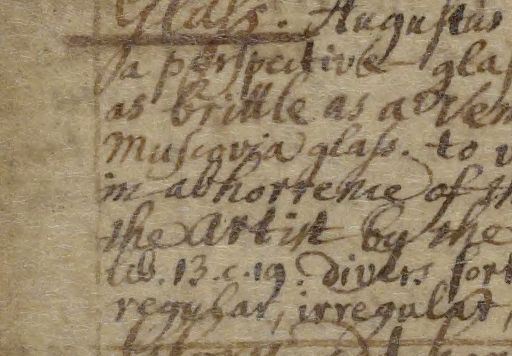 Glass. Augustus
sa perspective glas
as britle as a Ven
Muscovia glass. to
in abhorrence of th
the Artist by the
lib. 13. c. 19. divers fort
regular, irregular,